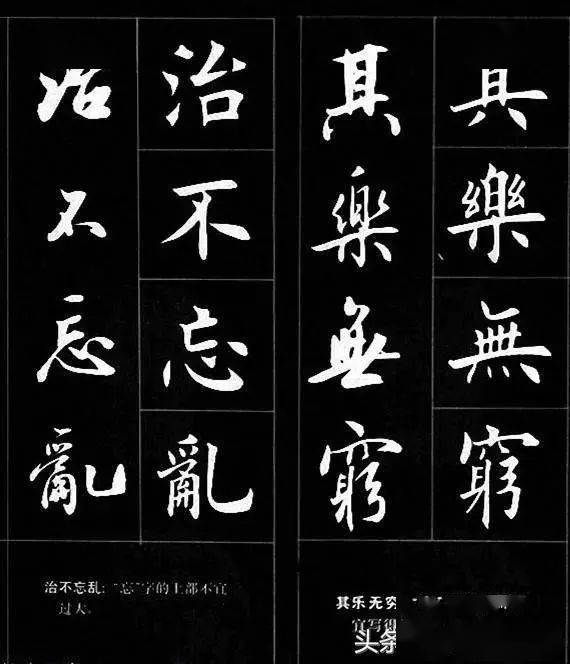 其樂無窮
其樂無窮
治不忘亂
治不忘亂
其乐无穷
宜写得
头条
治不忘乱:“忘”字的上部不宜
过大。